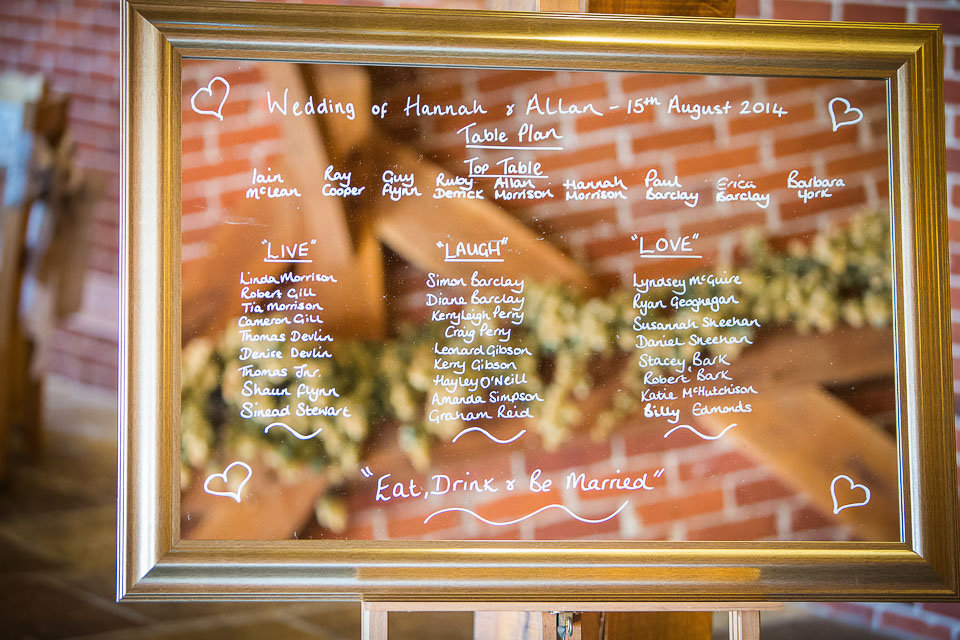 Wedding of Hannah & Allan - 15th August 2014
Table Plan
Top Table
Iain McLean
Ray Cooper
Guy Flynn
Ruby Derrick
Allan Morrison
Hannah Morrison
Paul Barclay
Erica Barclay
Barbara York
"LIVE"
Linda Morrison
Robert Gill
Tia Morrison
Cameron Gill
Thomas Devlin
Denise Devlin
Thomas Jnr.
Shaun Flynn
Sinead Stewart
"LAUGH"
Simon Barclay
Diane Barclay
Kerryleigh Perry
Craig Perry
Leonard Gibson
Kerry Gibson
Hayley O'Neill
Amanda Simpson
Graham Reid
"LOVE"
Lyndsey McGuire
Ryan Geoghegan
Susannah Sheehan
Daniel Sheehan
Stacey Bark
Robert Bark
Katie McHutchison
Billy Edmonds
"Eat, Drink & Be Married"